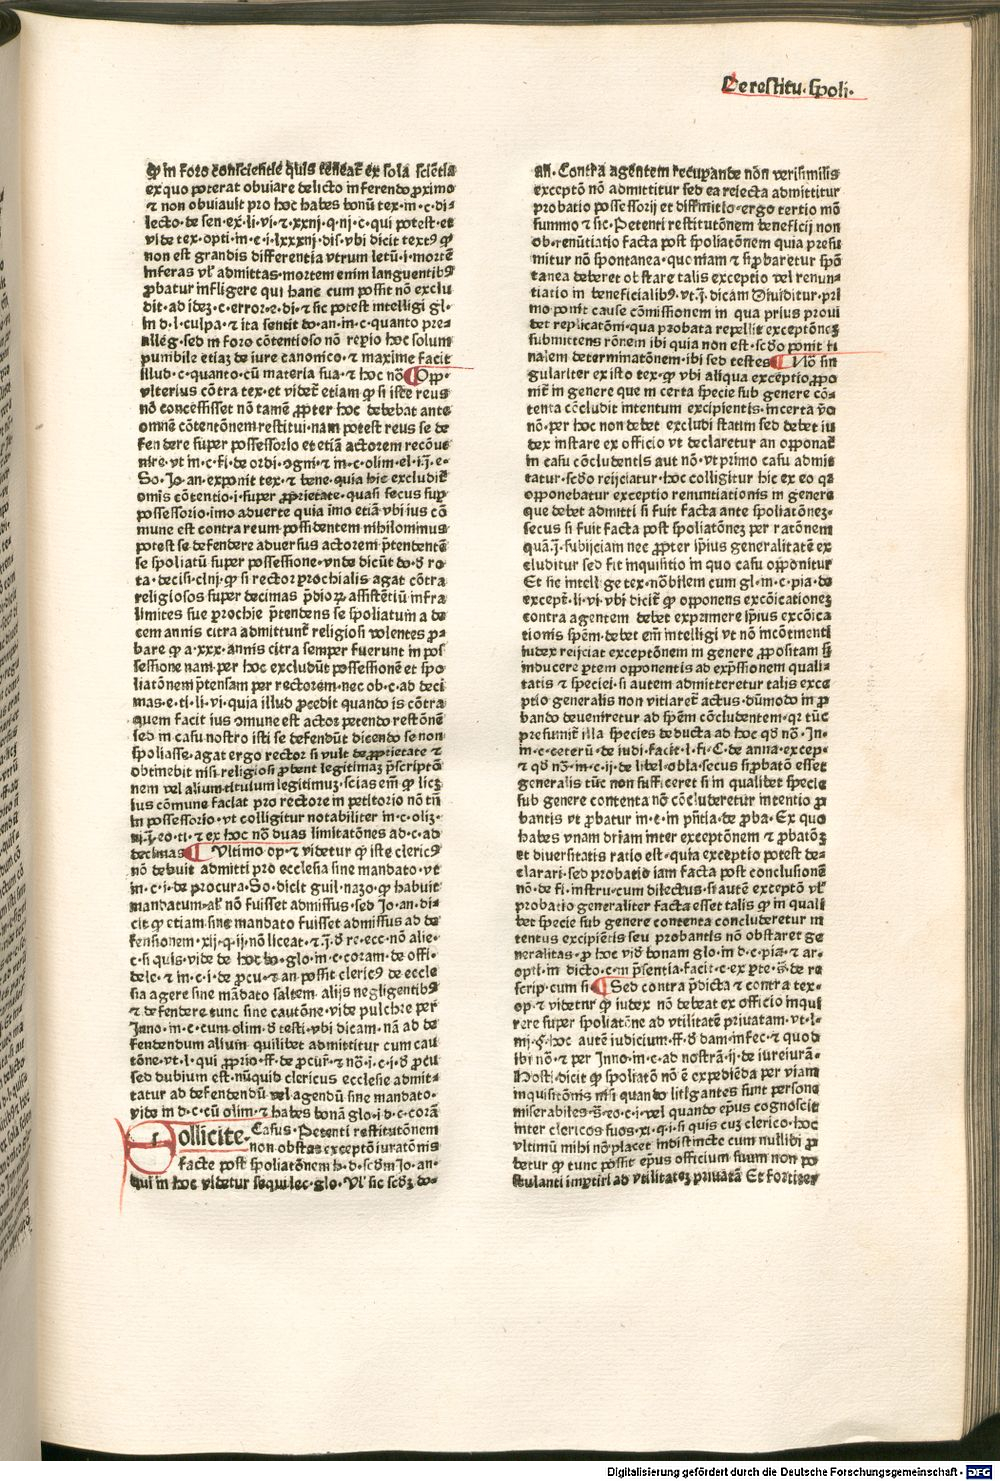 De restitu. spoli.
ꝙ in foro conscientie quis teneat᷑ ex sola sciẽtia
ex quo poterat obuiare delicto inferendo ꝓximo
⁊ non obuiauit pro hoc habes bonũ tex. in. c. di-
lecto. de sen. ex. li. vi. ⁊. xxiij. q. iij. c. qui potest. et
vide tex. opti. in. c. i. lxxxiij. dis. vbi dicit textꝰ ꝙ
non est grandis differentia vtrum letũ. i. mortẽ
inferas vĺ admittas. mortem enim languentibꝰ
ꝓbatur infligere qui hanc cum possit nõ exclu
dit. ad idez. c. error. e. di. ⁊ sic potest intelligi gl.
in d. l. culpa. ⁊ ita sentit do. an. in. c. quanto pre-
alleg. sed in foro cõtentioso nõ reꝑio hoc solum
punibile etiaz de iure canonico. ⁊ maxime facit
illud. c. quanto. cũ materia sua. ⁊ hoc nõ ¶ Opp.
vlterius cõtra tex. et videt᷑ etiam ꝙ si iste reus
nõ concessisset nõ tamẽ ꝓpter hoc debebat ante
omnẽ cõtentõnem restitui. nam potest reus se de
fendere super possessorio et etiã actorem recõue
nire. vt in. c. fi. de ordi. ɔgni. ⁊ in. c. olim. el. i. j̃. e.
So. Jo. an. exponit tex. ⁊ bene. quia hic excludit᷑
omĩs cõtentio. i. super ꝓprietate. quasi secus suꝑ
possessorio. imo aduerte quia imo etiã vbi ius cõ
mune est contra reum possidentem nihilominus
potest se defendere aduersus actorem p̃tendentẽ
se spoliatũ super possessione. vnde dicũt do. d̃ ro
ta. decisi. clnj. ꝙ si rector ꝑrochialis agat cõtra
religiosos super decimas p̃dioꝝ. assistẽtiũ infra
limites sue ꝑrochie p̃tendens se spoliatum a de
cem annis citra admittunt᷑ religiosi volentes ꝓ-
bare ꝙ a. xxx. annis citra semper fuerunt in pos
sessione nam. per hoc excludũt possessionẽ et spo
liatõnem p̃tensam per rectorem. nec ob. c. ad deci
mas. e. ti. li. vi. quia illud ꝓcedit quando is cõtra
quem facit ius ɔmune est actor petendo restõnẽ
sed in casu nostro isti se defendũt dicendo se non
spoliasse. agat ergo rector si vult de ꝓprietate ⁊
obtinebit nisi religiosi ꝓbent legitimaz p̃scriptõ
nem vel alium titulum legitimuz. scias em̃ ꝙ licz
ius cõmune faciat pro rectore in petitorio nõ tñ
in possessorio. vt colligitur notabiliter in. c. oliz.
ij. j̃. eo. ti. ⁊ ex hoc nõ duas limitatõnes ad. c. ad
decimas ¶ Vltimo op. ⁊ videtur ꝙ iste clericꝰ
nõ debuit admitti pro ecclesia sine mandato. vt
in. c. i. de procura. So. dicit guil. nazo. ꝙ habuit
mandatum. al᷑ nõ fuisset admissus. sed Jo. an. di-
cit ꝙ etiam sine mandato fuisset admissus ad de
fensionem. xij. q. ij. nõ liceat. ⁊. j̃. d̃ re. ecc. nõ alie.
c. si quis. vide de hoc bo. glo. in. c. coram. de offi.
dele. ⁊ in. c. i. de ꝓcu. ⁊ an possit clericꝰ de eccle
sia agere sine mãdato saltem. alijs negligentibꝰ
⁊ defendere tunc sine cautõne. vide pulchre per
Inno. in. c. cum olim. d̃ testi. vbi dicam. nã ad de
fendendum alium quilibet admittitur cum cau
tõne. vt. l. qui ꝓprio. ff. de ꝓcur᷑. ⁊ nõ. i. c. i. d̃ ꝓcu
sed dubium est. nũquid clericus ecclesie admit-
tatur ad defendendũ vel agendũ sine mandato.
vide in d. c. cũ olim. ⁊ habes bonã glo. i d. c. corã
Sollicite. Casus. Petenti restitutõnem
non obstat exceptõ iuratõnis
facte post spoliatõnem h. d. scd̃m Jo. an.
qui in hoc videtur sequi lec. glo. Vĺ sic scd̃z do-
an. Contra agentem recuꝑande nõn verisimilis
exceptõ nõ admittitur sed ea reiecta admittitur
probatio possessorij et diffinitio. ergo tertio mõ
summo ⁊ sic. Petenti restitutõnem beneficij non
ob. renũtiatio facta post spoliatõnem quia presu
mitur nõ spontanea. quoniam ⁊ si ꝓbaretur spõ
tanea deberet obstare talis exceptio vel renun-
tiatio in beneficialibꝰ. vt. j̃. dicam Diuiditur. pri
mo ponit cause cõmissionem in qua prius proui
det replicatõni. qua probata repellit exceptõnez
submittens rõnem ibi quia non est. scd̃o ponit fi
nalem determinatõnem. ibi sed testes ¶ Nõ sin
gulariter ex isto tex. ꝙ vbi aliqua exceptio ꝓpo
nit᷑ in genere que in certa specie sub genere cõ-
tenta cõcludit intentum excipientis. incerta v̈o
nõ. per hoc non debet excludi statim sed debet iu
dex instare ex officio vt declaretur an opponat᷑
in casu cõcludentis aut nõ. vt primo casu admit
tatur. scd̃o reijciatur. hoc colligitur hic ex eo qꝛ
opponebatur exceptio renuntiationis in genere
que debet admitti si fuit facta ante spoliatõnez.
secus si fuit facta post spoliatõnez per ratõnem
quã. j̃. subijciam nec ꝓpter ip̃ius generalitatẽ ex
cluditur sed fit inquisitio in quo casu opponitur
Et sic intellige tex. nõbilem cum gl. in. c. pia. de
except᷑. li. vi. vbi dicit᷑ ꝙ opponens excõicationez
contra agentem debet exprimere ip̃ius excõica
tionis sp̃em. debet em̃ intelligi vt nõ incõtinenti
iudex reijciat exceptõnem in genere ꝓpositam s̃
inducere ꝑtem opponentis ad exp̃ssionem quali-
tatis ⁊ speciei. si autem admitteretur talis exce
ptio generalis non vitiaret᷑ actus. dũmodo in ꝓ
bando deueniretur ad sp̃em cõcludentem. qꝛ tũc
presumit᷑ illa species deducta ad hoc qd̃ nõ. In-
in. c. ceterũ. de iudi. facit. l. fi. C. de anna. excep.
⁊ qd̃ nõ. in. c. ij. de libel. obla. secus si ꝓbatõ esset
generalis tũc non sufficeret si in qualibet specie
sub genere contenta nõ cõcluderetur intentio ꝓ
bantis vt ꝓbatur in. c. in p̃ntia. de ꝓba. Ex quo
habes vnam dr̃iam inter exceptõnem ⁊ ꝓbatõz
et diuersitatis ratio est. quia exceptio potest de-
clarari. sed probatio iam facta post conclusionẽ
nõ. de fi. instru. cum dilectus. si autẽ exceptõ vĺ
probatio generaliter facta esset talis ꝙ in quali
bet specie sub genere contenta concluderetur in
tentus excipiẽtis seu probantis nõ obstaret ge
neralitas. ꝓ hoc vid̃ bonam glo. in d. c. pia. ⁊ ar.
opti. in dicto. c. in p̃sentia. facit. c. ex ꝑte. s̃. de re
scrip. cum si ¶ Sed contra p̃dicta ⁊ contra tex.
op. ⁊ videtur ꝙ iudex nõ debeat ex officio inqui
rere super spoliatõne ad vtilitatẽ priuatam. vt. l.
iiij. §. hoc autẽ iudicium. ff. d̃ dam. infec. ⁊ quod
ibi nõ. ⁊ per Inno. in. c. ad nostrã. ij. de iureiurã.
Hosti. dicit ꝙ spoliatõ nõ ẽ expediẽda per viam
inquisitõnis nisi quando litigantes sunt persone
miserabiles. s̃. eo. c. i. vel quando ep̃us cognoscit
inter clericos suos. xi. q. i. si quis cuz clerico. hoc
vltimũ mihi nõ placet indistincte cum nullibi ꝓ
betur ꝙ tunc possit ep̃us officium suum non po
stulanti imꝑtiri ad vtilitatez priuatã Et fortiter
Digitalisierung gefördert durch die Deutsche Forschungsgemeinschaft - DFG